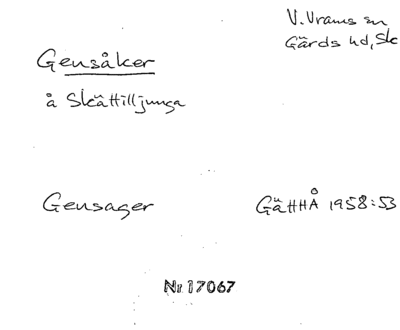 V. Vrams sn
Gärds hd, Sk
Gensåker
å Skättilljunga
Gensager
GäHHÅ 1958:53
Nr 17067